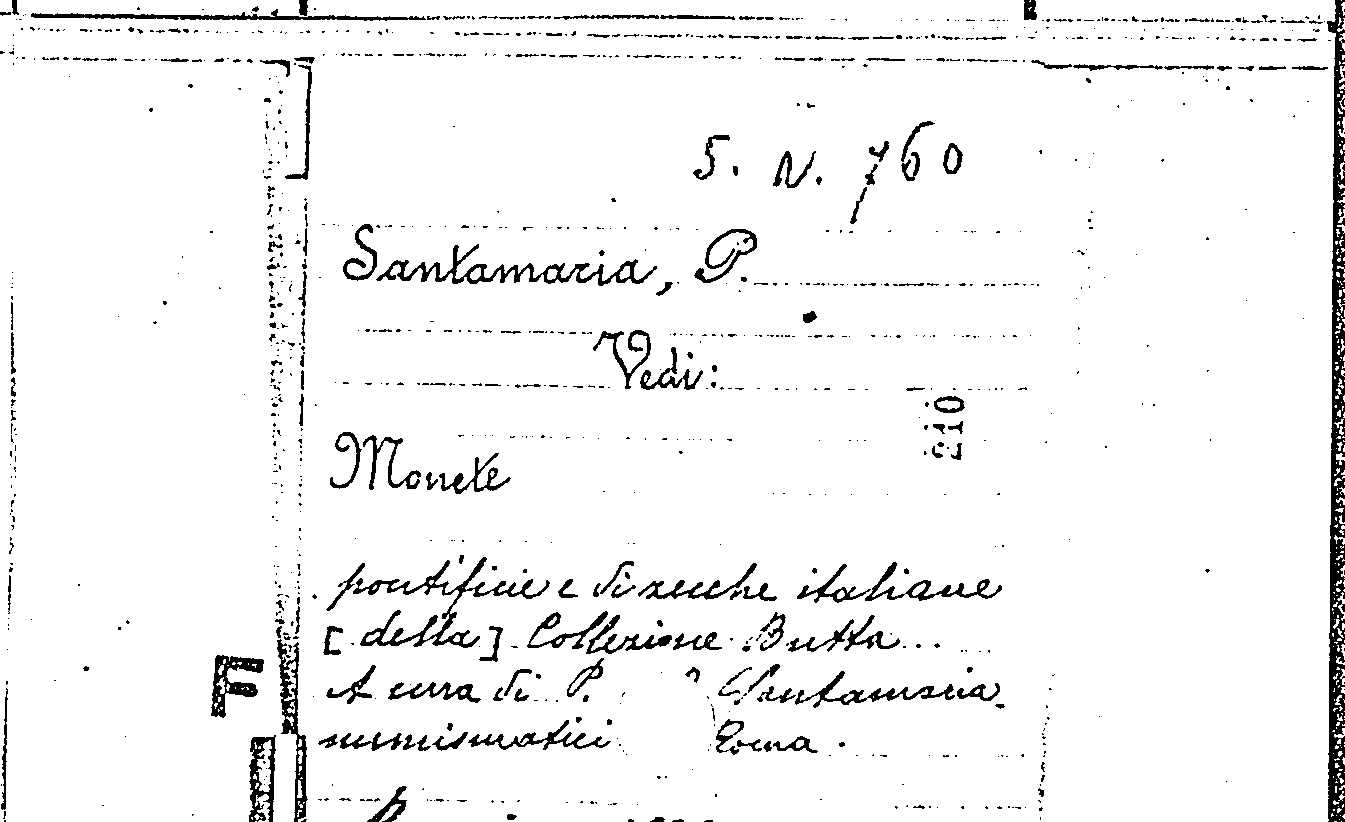 5. N. 760
Santamaria, P.
Vedi:
210
Monete
pontificie e di zecche italiane
[della] Collezione Butta...
A cura di P. Santamaria
numismatici Roma.
F